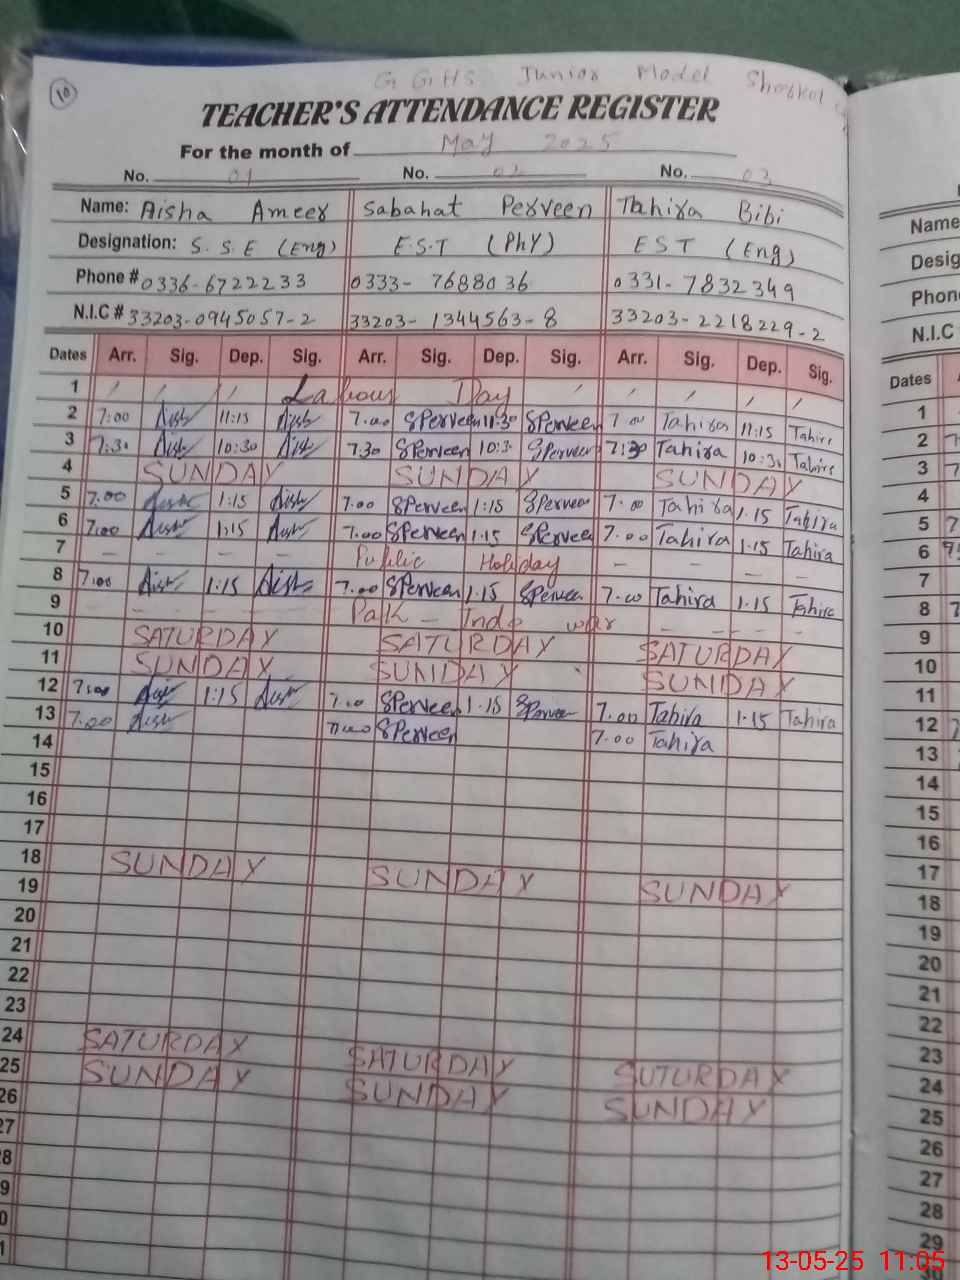 10
G GHS Junior Model
TEACHER'S ATTENDANCE REGISTER
For the month of May 2025
No. 01 No. 02 No. 03
Name: Aisha Ameer Sabahat Perveen Tahira Bibi
Designation: S.S.E (Eng) E.S.T (PhY) EST (Eng)
Phone # 0336-6722233 0333-7688036 0331-7832349
N.I.C # 33203-0945057-2 33203-1344563-8 33203-2218229-2
Dates Arr. Sig. Dep. Sig. Arr. Sig. Dep. Sig. Arr. Sig. Dep. Sig.
1 Labour Day
2 7:00 Aish 11:15 Aish 7.00 SPerveen 11:30 SPerveen 7.00 Tahira 11:15 Tahira
3 7:30 Aish 10:30 Aish 7.30 SPerveen 10:3 SPerveen 7:30 Tahira 10:30 Tahira
4 SUNDAY SUNDAY SUNDAY
5 7.00 Aish 1:15 Aish 7.00 SPerveen 1:15 SPerveen 7.00 Tahira 1.15 Tahira
6 7:00 Aish 1:15 Aish 7.00 SPerveen 1.15 SPerveen 7.00 Tahira 1.15 Tahira
7 – – – – Public Holiday – – – –
8 7:00 Aish 1:15 Aish 7.00 SPerveen 1.15 SPerveen 7.00 Tahira 1.15 Tahira
9 Pak – Indo war
10 SATURDAY SATURDAY SATURDAY
11 SUNDAY SUNDAY SUNDAY
12 7:00 Aish 1:15 Aish 7.00 SPerveen 1.15 SPerveen 7.00 Tahira 1.15 Tahira
13 7.00 Aish 7.00 SPerveen 7.00 Tahira
14
15
16
17
18 SUNDAY SUNDAY SUNDAY
19
20
21
22
23
24 SATURDAY SATURDAY SUTURDAY
25 SUNDAY SUNDAY SUNDAY
26
27
8
9
0
1
Name
Desig
Phon
N.I.C
Dates
1
2
3
4
5
6
7
8
9
10
11
12
13
14
15
16
17
18
19
20
21
22
23
24
25
26
27
28
29
30
13-05-25 11:05